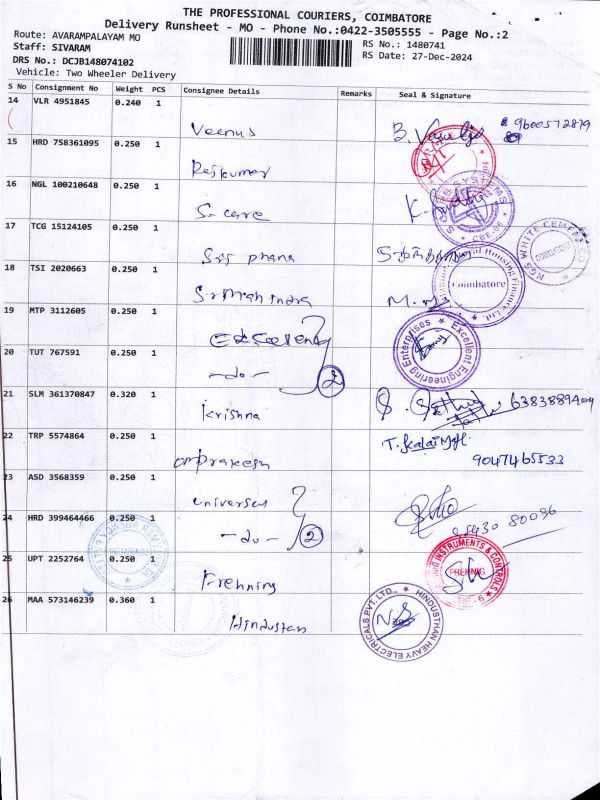 THE PROFESSIONAL COURIERS, COIMBATORE
Delivery Runsheet - MO - Phone No.:0422-3505555 - Page No.:2
Route: AVARAMPALAYAM MO
Staff: SIVARAM
RS No.: 1480741
DRS No.: DCJB148074102
RS Date: 27-Dec-2024
Vehicle: Two Wheeler Delivery
S No Consignment No Weight PCS Consignee Details Remarks Seal & Signature
14 VLR 4951845 0.240 1
Veenus 9600572879
15 HRD 758361095 0.250 1
Rajkumar
16 NGL 100210648 0.250 1
S. care
17 TCG 15124105 0.250 1
Sri phana
18 TSI 2020663 0.250 1
Coimbatore
Sri Mahindra
19 MTP 3112605 0.250 1
Excellent Engineering Enterprises
20 TUT 767591 0.250 1
-do- 2
21 SLM 361370847 0.320 1
Krishna
22 TRP 5574864 0.250 1
omprakash 9047465533
23 ASD 3568359 0.250 1
universus
24 HRD 399464466 0.250 1
-do- 2
25 UPT 2252764 0.250 1
INSTRUMENTS & CONTROLS
FREHNIG
Frehning
26 MAA 573146239 0.360 1
HINDUSTHAN HEAVY ELECTRICALS PVT.LTD.,
Hindustan